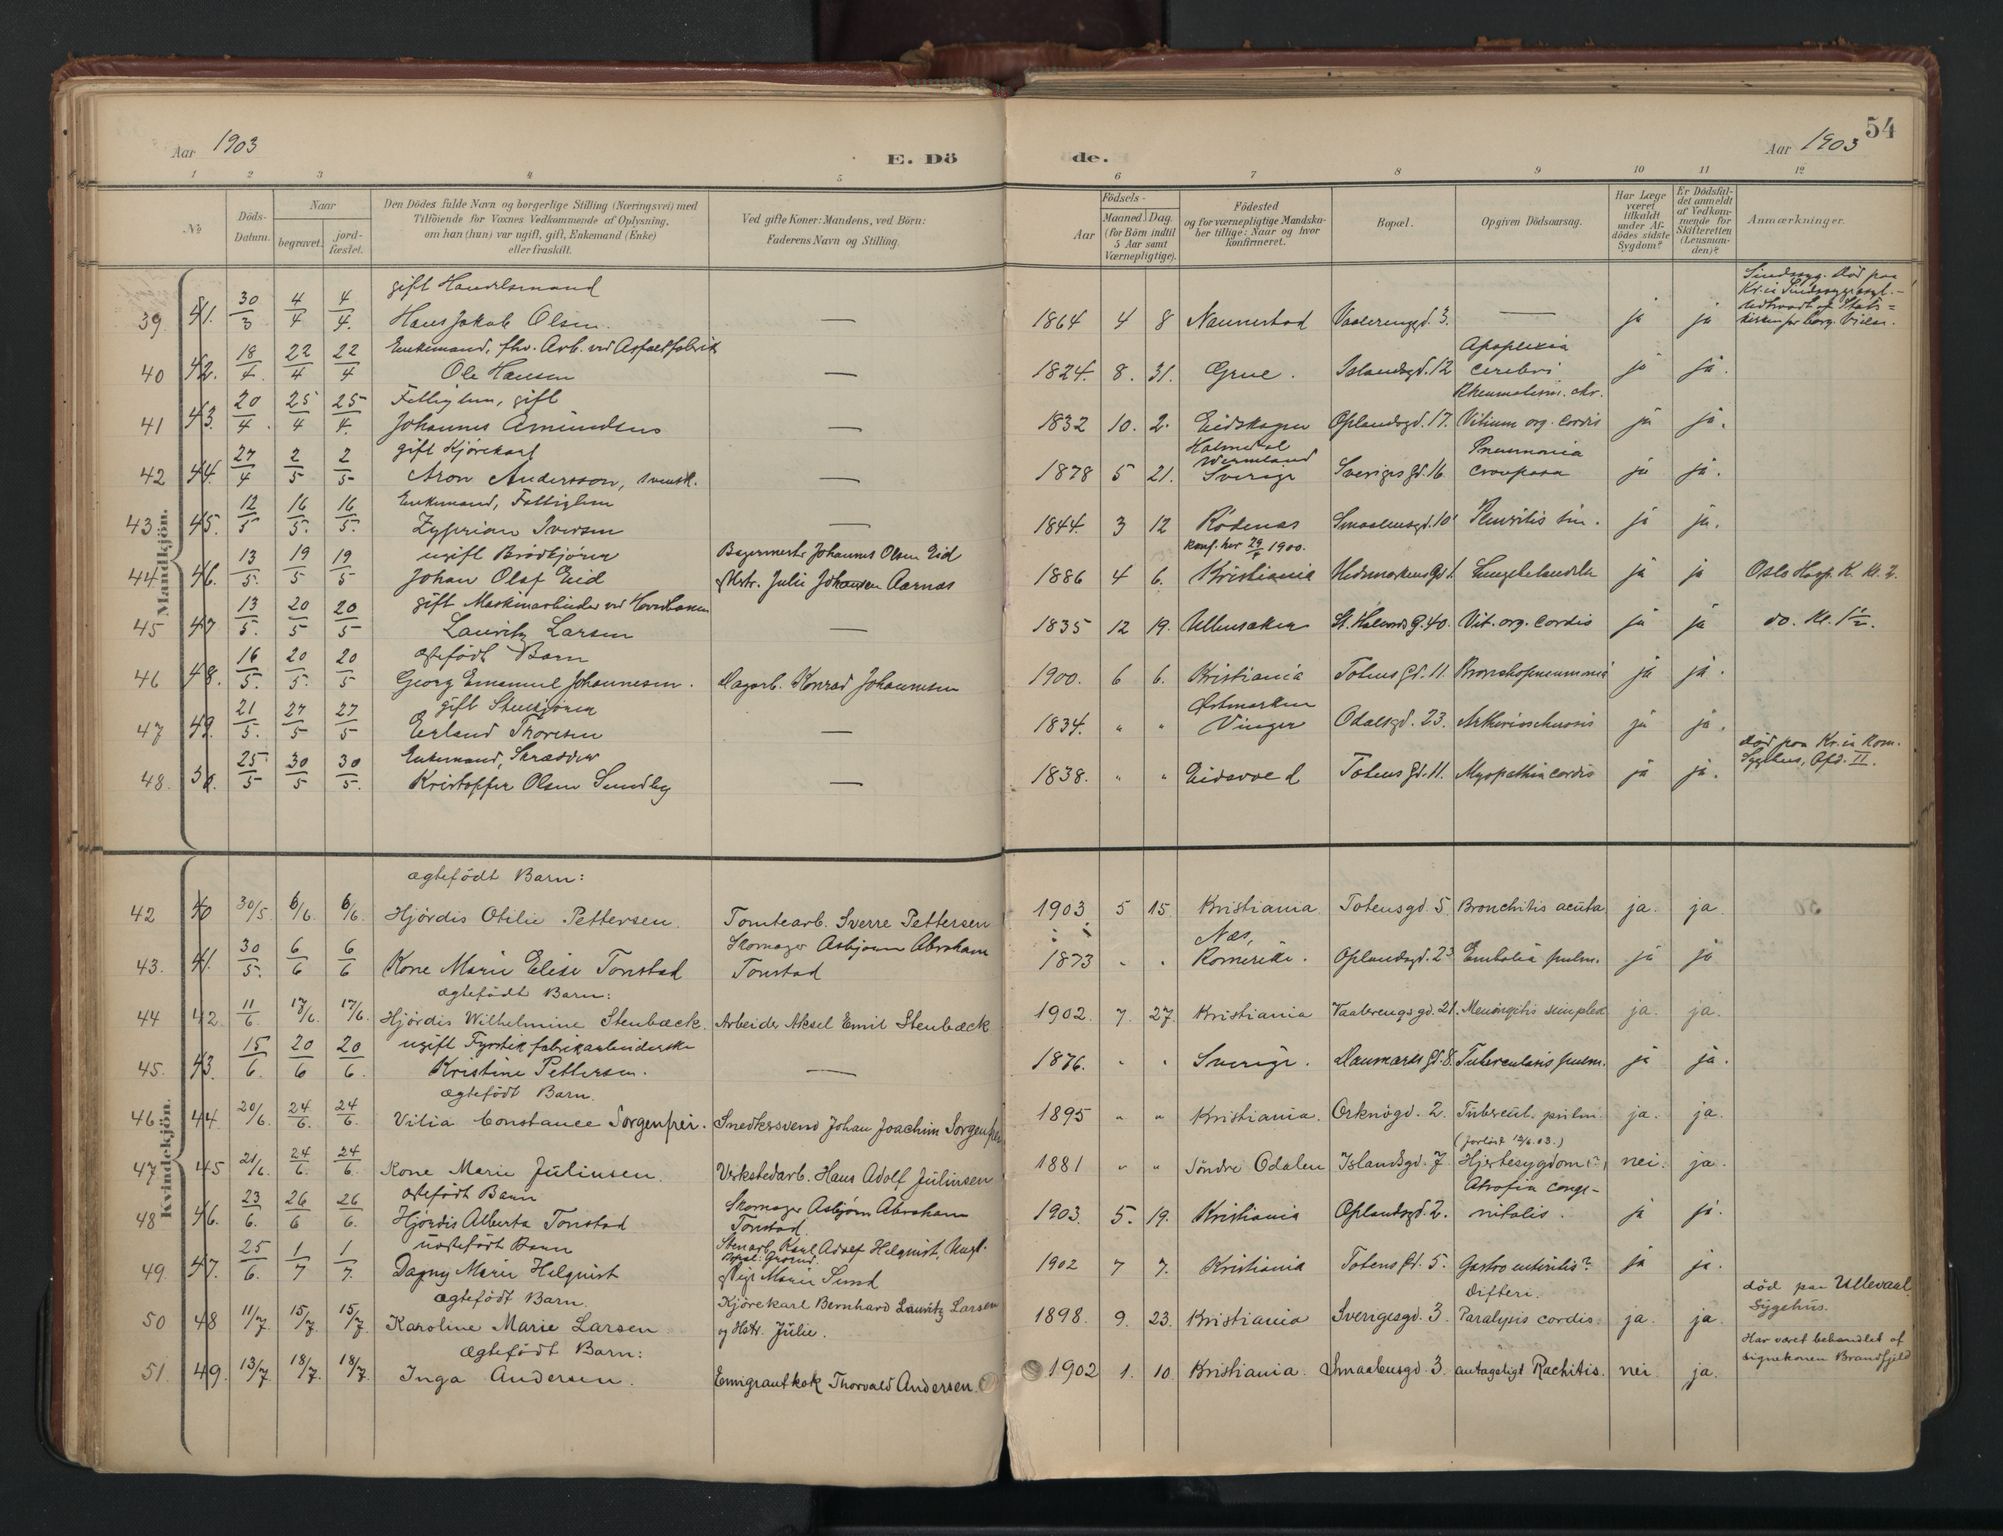 Aar 1903
E. Dö
1 2 3 4 5
№
Döds-Datum.
Naar
begravet.
jord-fæstet.
Den Dödes fulde Navn og borgerlige Stilling (Næringsvei) med
Tilföiende for Voxnes Vedkommende af Oplysning,
om han (hun) var ugift, gift, Enkemand (Enke)
eller fraskilt.
Ved gifte Koner: Mandens, ved Börn:
Faderens Navn og Stilling.
Mandkjön.
39 41. 30/3 4/4 4/4. gift Handelsmand
Hans Jakob Olsen. —
40 42. 18/4. 22/4 22/4 Enkemand, fhv. Arb. ved Asfaltfabrik
Ole Hansen —
41 43. 20/4. 25/4 25/4. Fattiglem, gift
Johannes Amundsen —
42 44. 27/4 2/5 2/5 gift Kjörekarl
Aron Andersson, svensk. —
43. 45. 12/5 16/5. 16/5. Enkemand, Fattiglem
Zyprian Iversen —
44 46. 13/5. 19/5 19/5 ugift Brödkjörer
Johan Olaf Eid
Bagermester Johannes Olsen Eid
& Hstr. Julie Johansen Aarnæs
45 47. 13/5. 20/5 20/5 gift Maskinarbeider ved Hovedbanen
Lauritz Larsen —
46 48. 16/5. 20/5. 20/5 ægtefödt Barn
Georg Emanuel Johannesen. Dagarb. Konrad Johannesen
47 49. 21/5. 27/5 27/5 gift Stenkjörer
Erland Thoresen —
48. 50. 25/5 30/5 30/5. Enkemand, Skrædder
Kristoffer Olsen Sundby —
Kvindekjön.
ægtefödt Barn:
42 40 30/5. 6/6. 6/6. Hjördis Otilie Pettersen. Tomtearb. Sverre Pettersen
43. 41. 30/5. 6/6 6/6 Kone Marie Elise Tonstad
Skomager Asbjörn Abraham
Tonstad
ægtefödt Barn:
44 42. 11/6 17/6. 17/6. Hjördis Wilhelmine Stenbæck. Arbeider Aksel Emil Stenbæck
45. 43. 15/6. 20/6 20/6. ugift Fyrstikfabrikarbeiderske
Kristine Pettersen. —
ægtefödt Barn.
46. 44. 20/6. 24/6. 24/6. Vilia Constance Sorgenfrei. Snedkersvend Johan Joachim Sorgenfrei
47. 45. 21/6. 24/6 24/6. Kone Marie Juliussen. Verkstedarb. Hans Adolf Juliussen
48 46. 23/6. 26/6 26/6. ægtefödt Barn
Hjördis Alberta Tonstad
Skomager Asbjörn Abraham
Tonstad.
49. 47. 25/6. 1/7 1/7. uægtefödt Barn
Dagny Marie Helquist
Stenarb. Karl Adolf Helquist, Ungk.
& Pige Marie Sund
ægtefödt Barn.
50 48 11/7 15/7. 15/7. Karoline Marie Larsen
Kjörekarl Bernhard Lauritz Larsen
og Hstr. Julie.
ægtefödt Barn:
51. 49. 13/7 18/7. 18/7. Inga Andersen. Emigrantkok Thorvald Andersen.
54
de.
Aar 1903
6 7 8 9 10 11 12
Födsels-
Aar
Maaned Dag.
(for Börn indtil
5 Aar samt
Værnepligtige).
Födested
og for værnepligtige Mandsku-
ber tillige: Naar og hvor
konfirmeret.
Bopæl.
Opgiven Dödsaarsag.
Har Læge
været
tilkaldt
under Af-
dödes sidste
Sygdom?
Er Dödsfal-
det anmeldt
af Vedkom-
mende for
Skifteretten
(Lensman-
den)?
Anmærkninger.
1864 4 8 Nannestad Vaalerengd. 3. — ja ja
Sindssyg. Död paa
Kr.ia Sindssygeasyl.
1824. 8. 31. Grue. Islandsgd. 12 Apoplexia
cerebri ja ja.
1832 10. 2. Eidskogen Oplandsgd. 17. Rheumatism. chr.
Vitium org. cordis ja ja.
1878 5 21. Wermland
Sverige Sverigesgd. 16. Pneumonia
crouposa ja ja.
1844. 3 12 Rödenæs Smaalensgd. 10 Pleuritis sin. ja ja.
Konf. her 29/4 1900.
1886 4 6. Kristiania Hedemarkensgd. 1. Lungebetændelse ja ja Oslo Hosp. K. Kl. 2.
1835 12 19. Ullensaker St. Halvards G. 40. Vit. org. cordis ja ja do. Kl. 1½.
1900. 6 6. Kristiania Totens Gd. 11. Bronchopneumonia ja ja.
1834. " " Østmarken
Vinger Odalsgd. 23. Arteriosclerosis ja ja.
1838. " " Eidsvold Totens Gd. 11. Myopathia cordis ja ja.
död paa Kr.ia kom.
Sygehus, Afd. II.
1903 5 15. Kristiania Totensgd. 5 Bronchitis acuta ja. ja
1873 " " Næs,
Romerike. Oplandsgd. 23 Embolia pulm. ja ja
1902. 7. 27. Kristiania Vaalerengsgd. 21. Meningitis simplex ja. ja.
1876. " " Sverige. Danmarks Gd. 8. Tuberculosis pulm. ja ja.
1895 " " Kristiania. Orknögd. 2. Tubercul. pulm. ja. ja.
(forlöst 12/6. 03.)
1881 " " Söndre Odalen Islandsgd. 7 Hjertesygdom(?) nei. ja.
1903. 5. 19. Kristiania Oplandsgd. 2. Atrofia conge-
nitalis. ja ja.
1902 7 7. Kristiania Totens Gd. 5. Gastroenteritis? ja ja.
1898. 9. 23. Kristiania Sverigesgd. 3 Difteri.
Paralysis cordis. ja. ja.
död paa Ullevaal
Sygehus.
1902 1. 10. Kristiania. Smaalensgd. 3. antageligt Rachitis. nei. ja.
Har været behandlet af
signekonen Brandfjeld